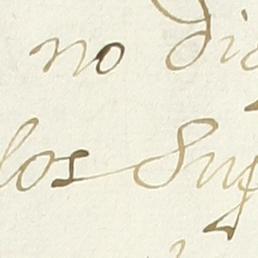 no di
los Suj